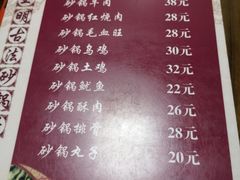 砂锅羊肉 38元
砂锅红烧肉 28元
砂锅毛血旺 28元
砂锅乌鸡 30元
砂锅土鸡 32元
砂锅鱿鱼 22元
砂锅酥肉 26元
砂锅排骨 28元
砂锅丸子 20元
明古法砂锅